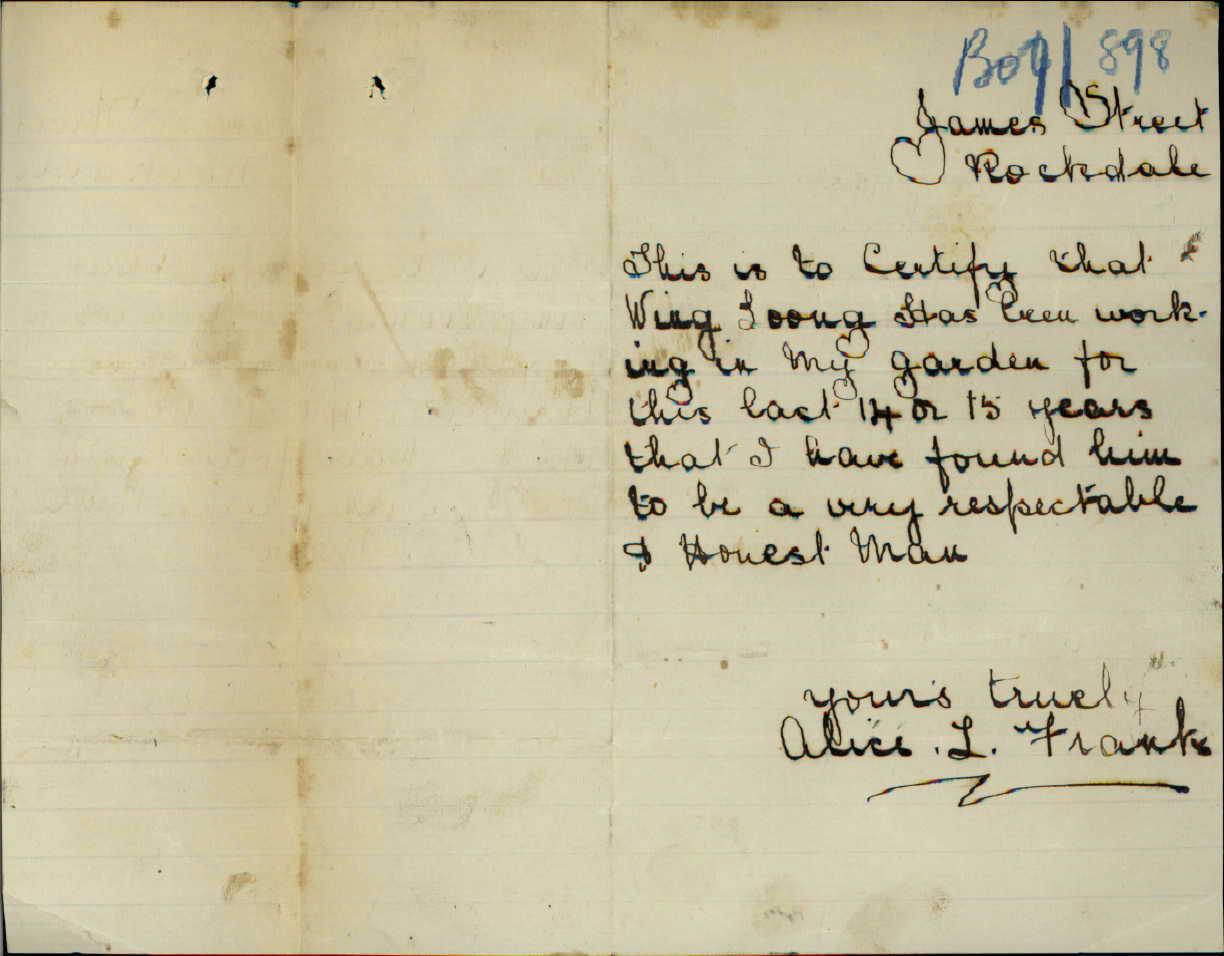 James Street
Rockdale
This is to Certify that
Wing Loong Has been work-
ing in My garden for
this last 14 or 15 years
that I have found him
to be a very respectable
& Honest Man
yours truely
Alice. L. Franks